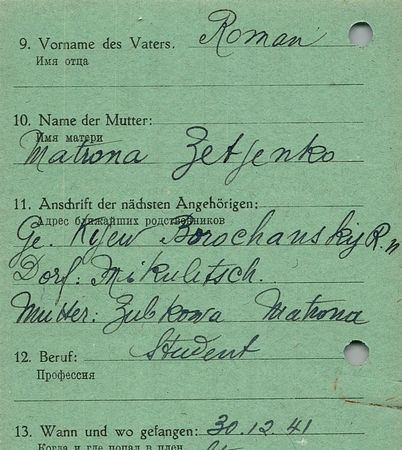 9. Vorname des Vaters. Roman
Имя отца
10. Name der Mutter:
Имя матери
Matrona Zetjenko
11. Anschrift der nächsten Angehörigen:
Адрес ближайших родственников
Ge. Kijew Borochansky R.n
Dorf: Mikulitsch.
Mutter: Zubkowa Matrona
12. Beruf: Student
Профессия
13. Wann und wo gefangen: 30.12.41
Когда и где попал в плен